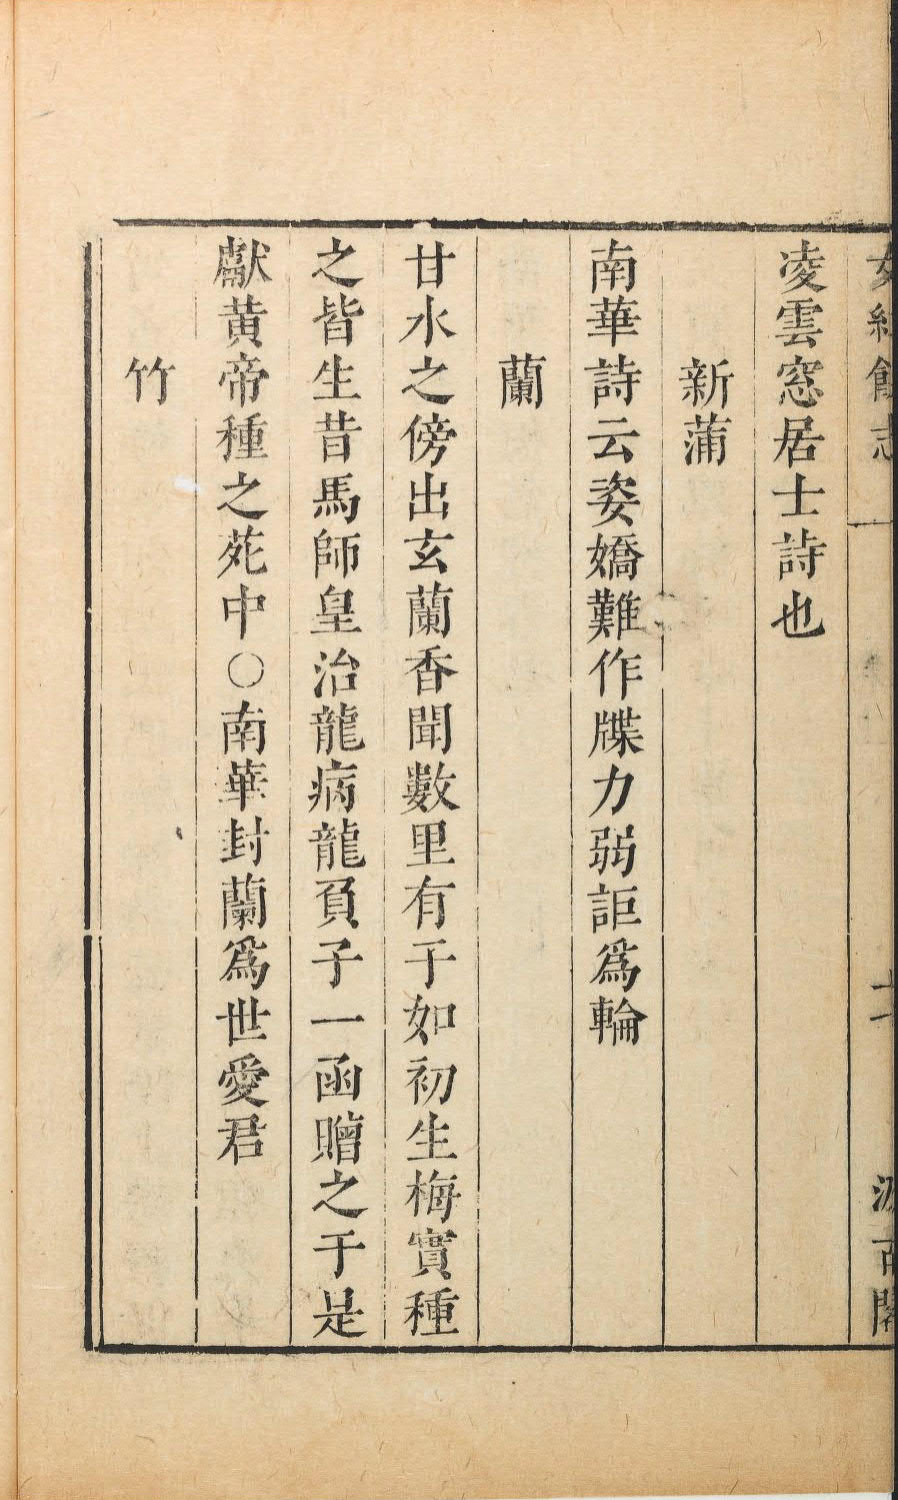 凌雲窓居士詩也
新蒲
南華詩云姿嬌難作牒力弱詎爲輪
蘭
甘水之傍出玄蘭香聞數里有子如初生梅實種
之皆生昔馬師皇治龍病龍負子一函贈之于是
獻黃帝種之苑中○南華封蘭爲世愛君
竹